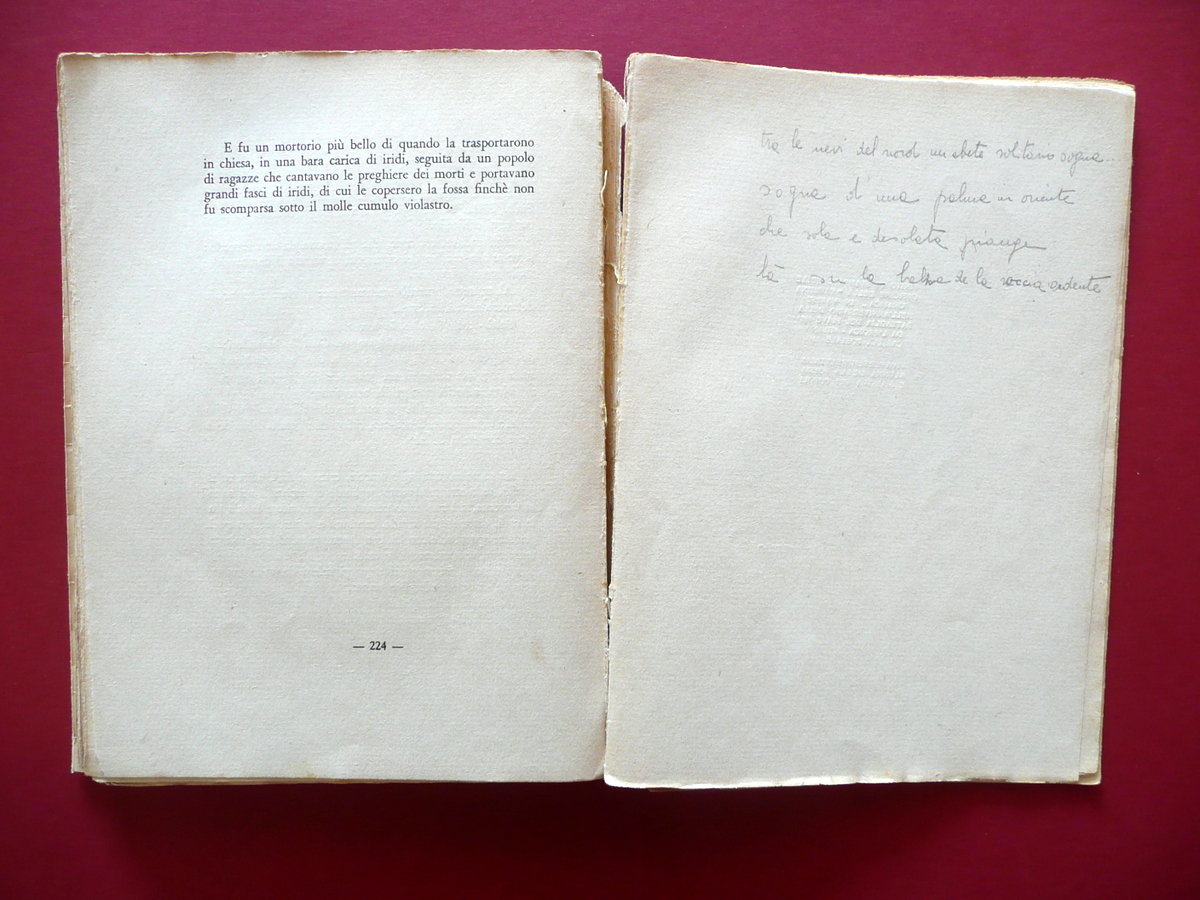 E fu un mortorio più bello di quando la trasportarono
in chiesa, in una bara carica di iridi, seguita da un popolo
di ragazze che cantavano le preghiere dei morti e portavano
grandi fasci di iridi, di cui le copersero la fossa finchè non
fu scomparsa sotto il molle cumulo violastro.
— 224 —
tra le nevi del nord un abete solitario sogna...
sogna d'una palma in oriente
che sola e desolata piange
là su la balza de la roccia ardente